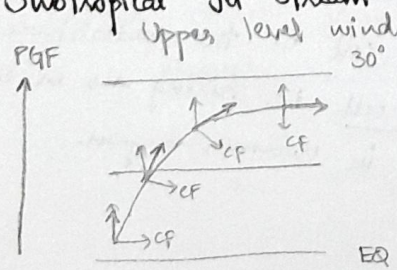 Subtropical Jet Stream
Upper level wind
PGF
30°
CF
CF
CF
CF
EQ